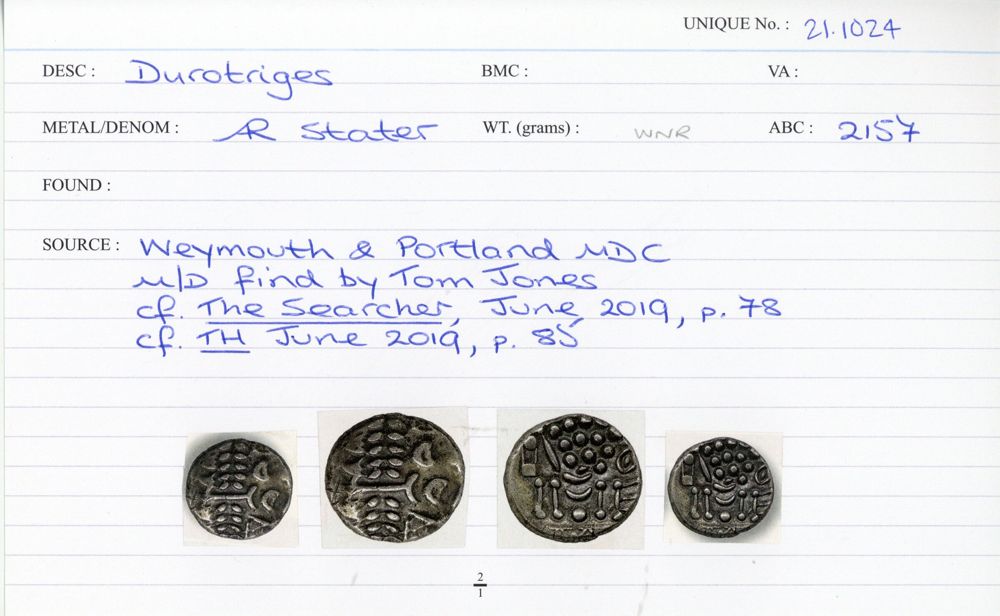 UNIQUE No. : 21.1024
DESC : Durotriges BMC : VA :
METAL/DENOM : AR Stater WT. (grams) : WNR ABC : 2157
FOUND :
SOURCE : Weymouth & Portland MDC
M/D find by Tom Jones
cf. The Searcher, June 2019, p. 78
cf. TH June 2019, p. 85
2
1